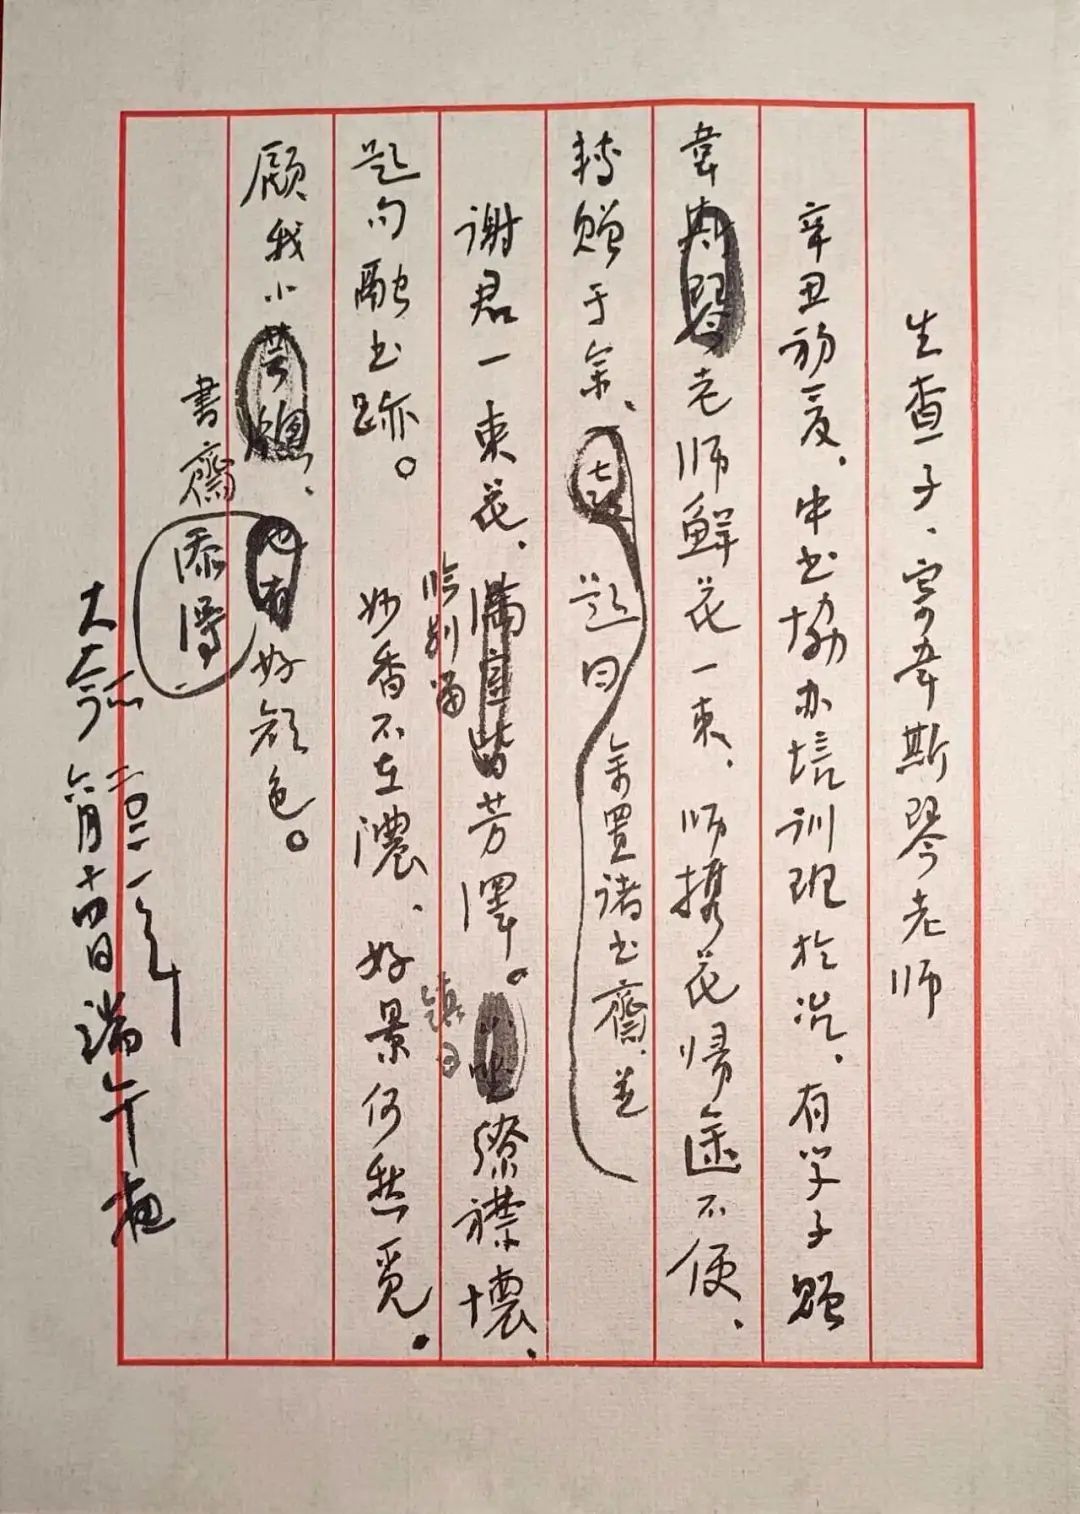 生查子、寄韦斯琴老师
辛丑初夏、中书协办培训班于沈、有学子赠
韦斯琴老师鲜花一束、师携花归途不便、
转赠于余、题曰
余置诸书斋、并
谢君一束花、满室皆芳泽。缭襟怀、
临别留
镇日
题句融书迹。 妙香不在浓、好景何愁觅。
顾我小、也有好颜色。
書齋添得
二〇二一年
六月十四日端午